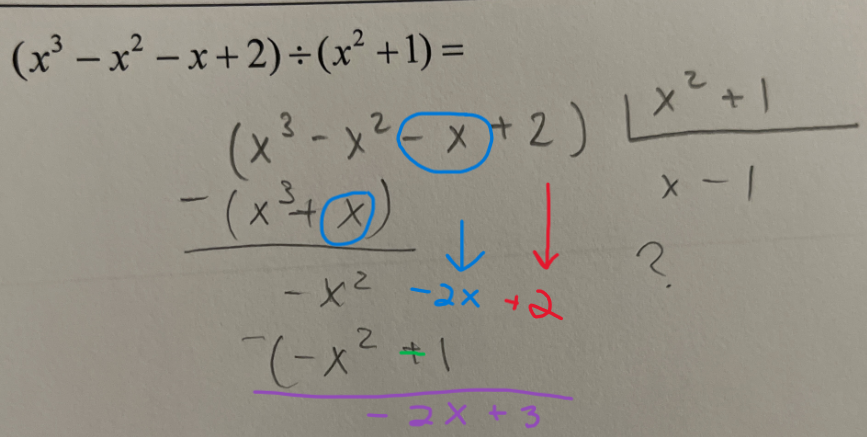 (x³ − x² − x + 2) ÷ (x² + 1) =
(x³ - x² - x + 2) x² + 1
- (x³ + x) x - 1
- x² - 2x + 2 ?
- (- x² + 1
- 2x + 3